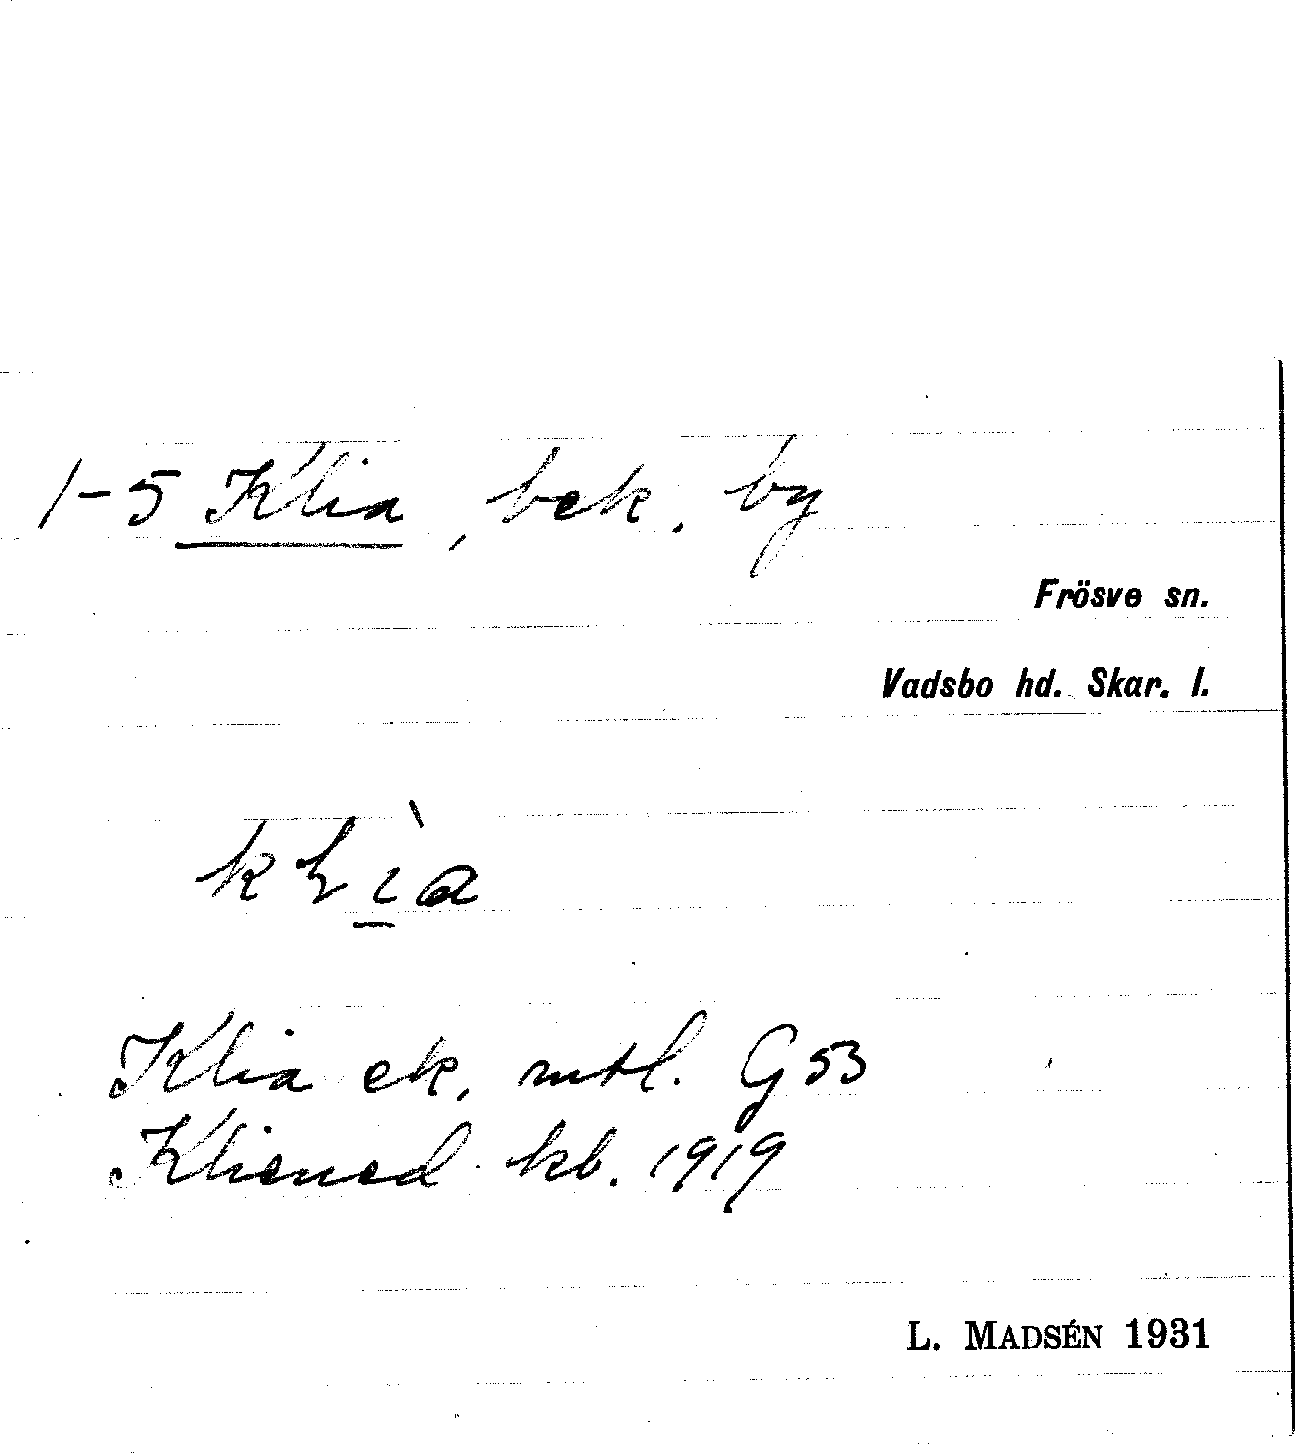 1-5 Klia, bek. by
Frösve sn.
Vadsbo hd. Skar. l.
Klia ek, mtl. G 53
Kliened kb. 1919
L. MADSÉN 1931